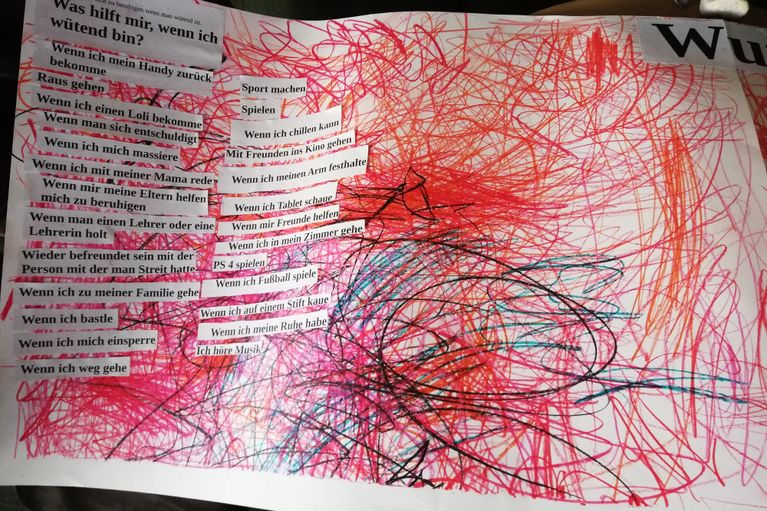 zu beruhigen wenn man wütend ist.
Was hilft mir, wenn ich
wütend bin?
Wenn ich mein Handy zurück
bekomme
Raus gehen
Wenn ich einen Loli bekomme
Wenn man sich entschuldigt
Wenn ich mich massiere
Wenn ich mit meiner Mama rede
Wenn mir meine Eltern helfen
mich zu beruhigen
Wenn man einen Lehrer oder eine
Lehrerin holt
Wieder befreundet sein mit der
Person mit der man Streit hatte
Wenn ich zu meiner Familie gehe
Wenn ich bastle
Wenn ich mich einsperre
Wenn ich weg gehe
Sport machen
Spielen
Wenn ich chillen kann
Mit Freunden ins Kino gehen
Wenn ich meinen Arm festhalte
Wenn ich Tablet schaue
Wenn mir Freunde helfen
Wenn ich in mein Zimmer gehe
PS 4 spielen
Wenn ich Fußball spiele
Wenn ich auf einem Stift kaue
Wenn ich meine Ruhe habe
Ich höre Musik
Wu